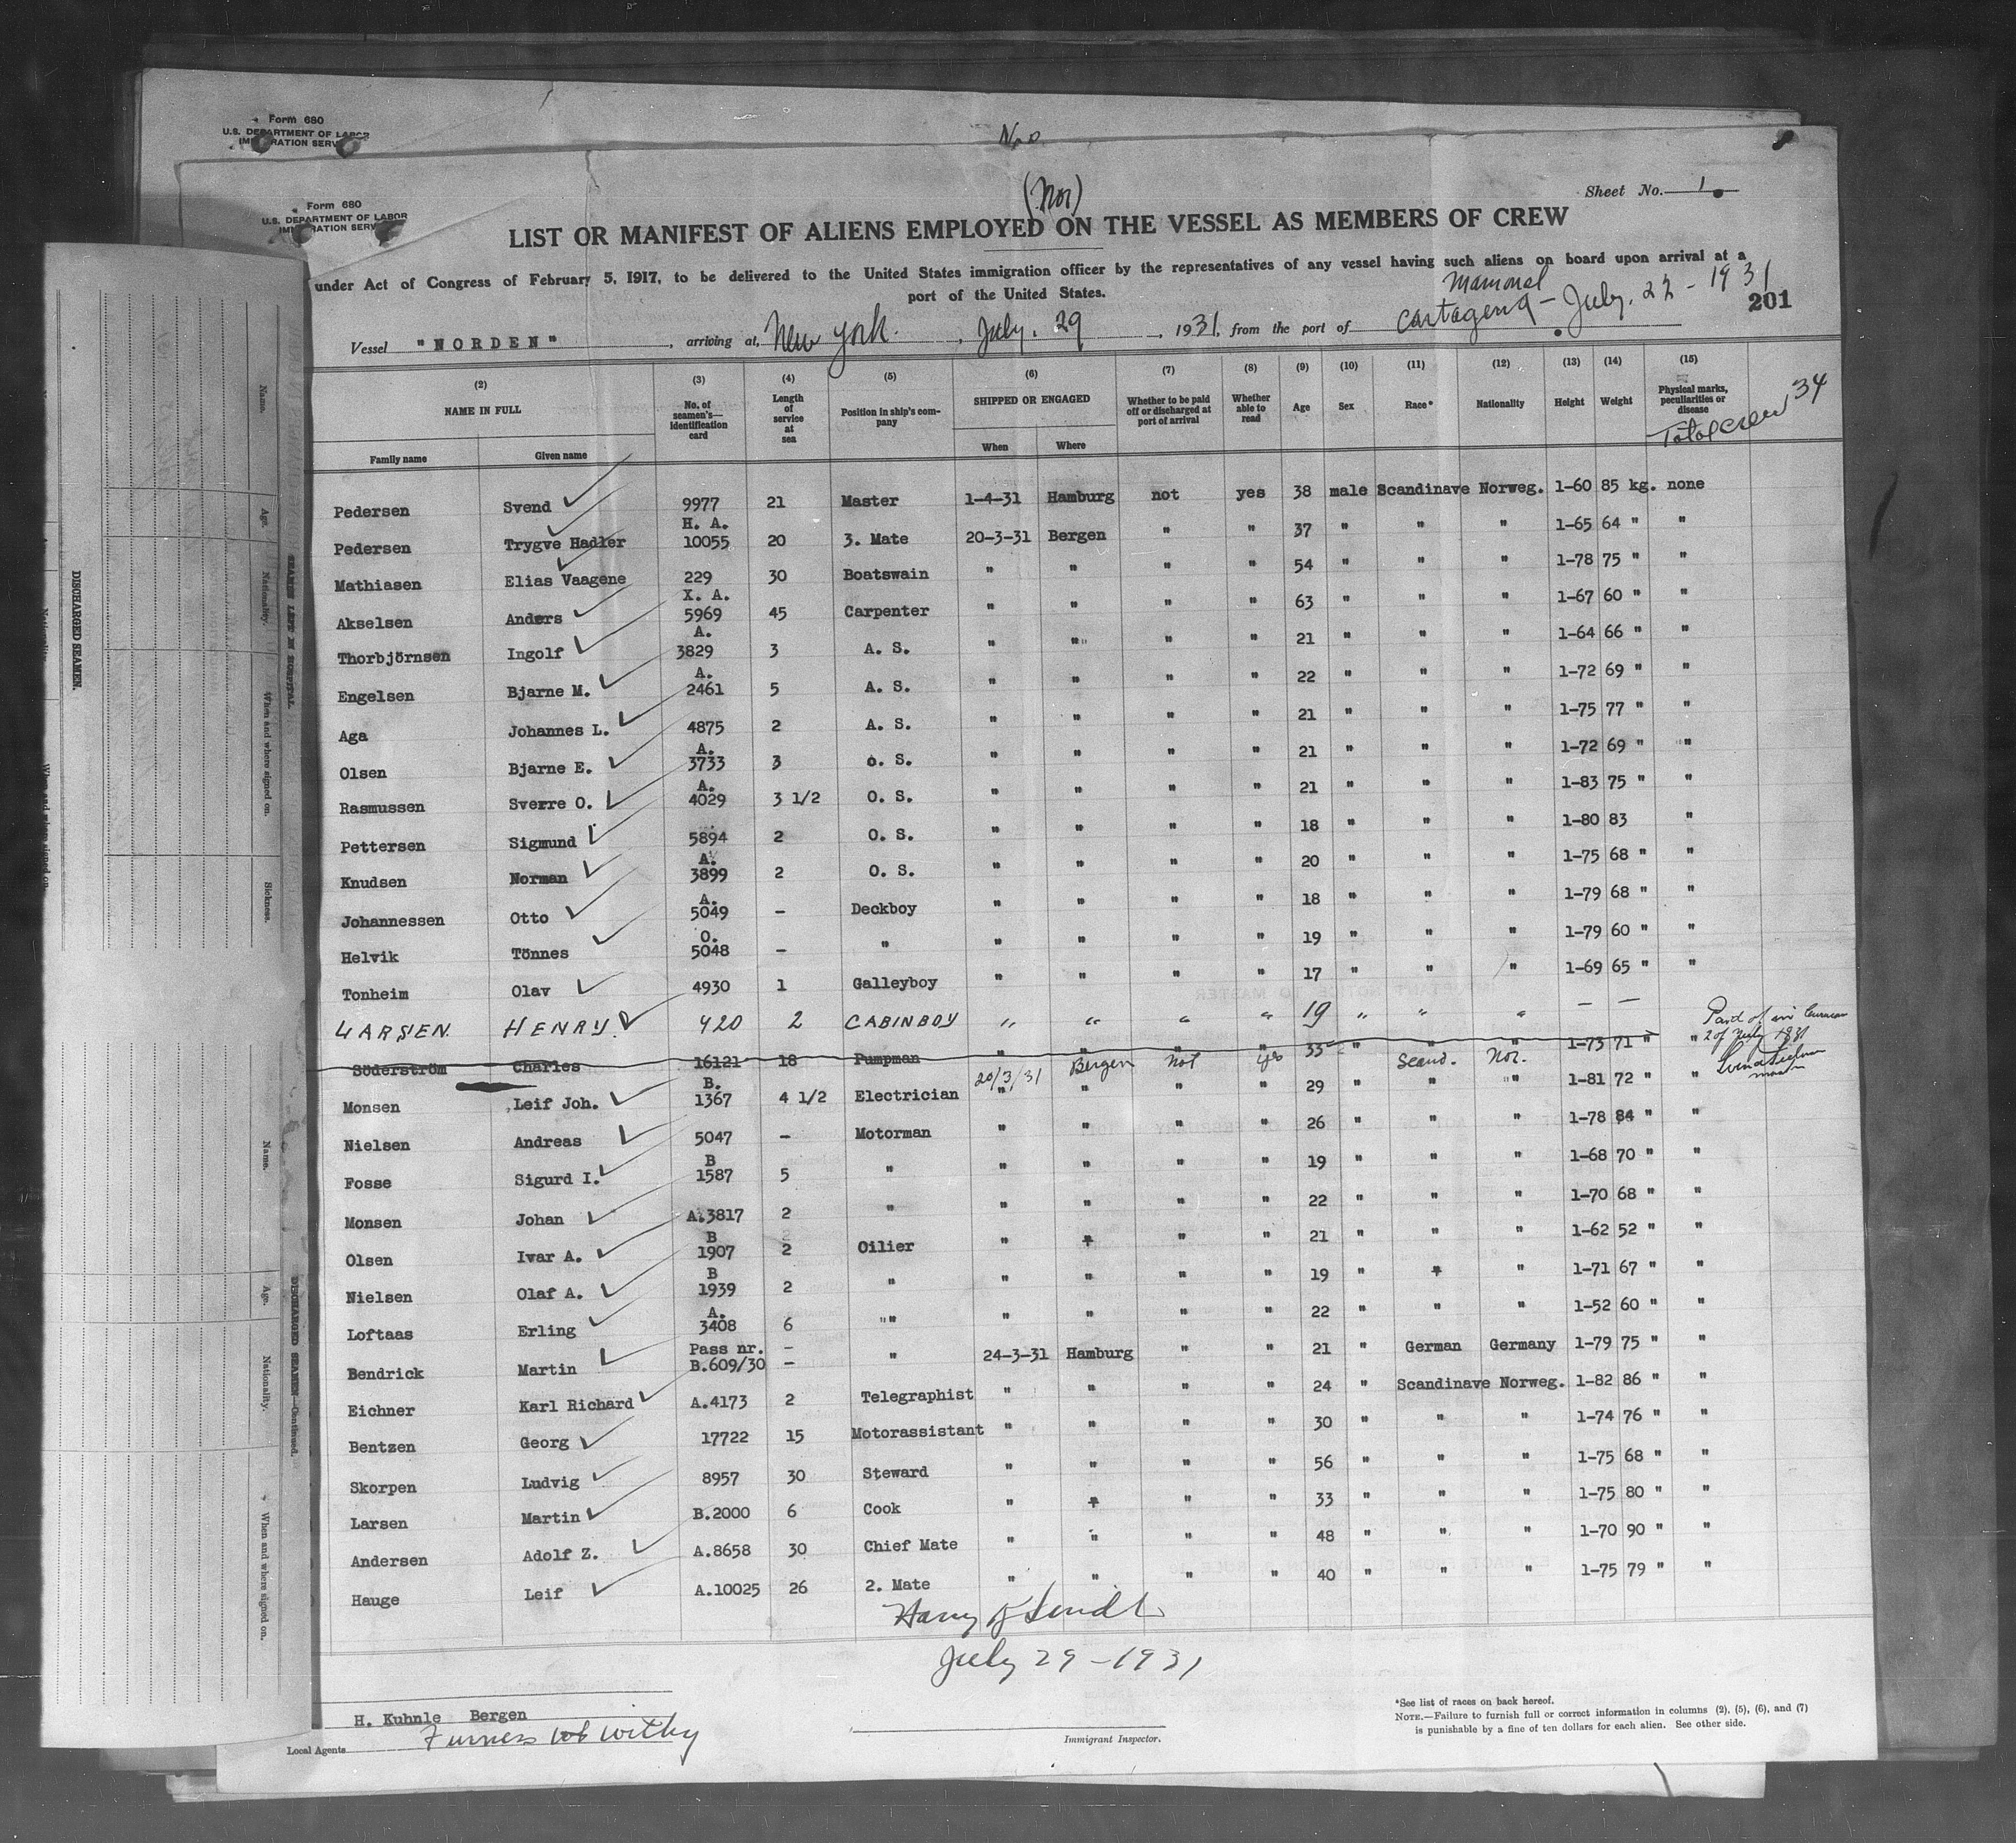 Form 680
U.S. DEPARTMENT OF LABOR
IMMIGRATION SERV
Form 680
U.S. DEPARTMENT OF LABOR
IMMIGRATION SERV
(Nor)
Sheet No. 1
LIST OR MANIFEST OF ALIENS EMPLOYED ON THE VESSEL AS MEMBERS OF CREW
under Act of Congress of February 5, 1917, to be delivered to the United States immigration officer by the representatives of any vessel having such aliens on board upon arrival at a
port of the United States.
Mamonal
201
Vessel "NORDEN", arriving at, New York., July. 29, 1931, from the port of Cartagena - July. 22 - 1931
(2) (3) (4) (5) (6) (7) (8) (9) (10) (11) (12) (13) (14) (15)
NAME IN FULL No. of seamen's—identification card Length of service at sea Position in ship's company SHIPPED OR ENGAGED Whether to be paid off or discharged at port of arrival Whether able to read Age Sex Race* Nationality Height Weight Physical marks, peculiarities or disease
Total crew 34
Family name Given name When Where
Pedersen Svend 9977 21 Master 1-4-31 Hamburg not yes 38 male Scandinave Norweg. 1-60 85 kg. none
Pedersen Trygve Hadler H. A. 10055 20 3. Mate 20-3-31 Bergen " " 37 " " " 1-65 64 " "
Mathiasen Elias Vaagene 229 30 Boatswain " " " " 54 " " " 1-78 75 " "
Akselsen Anders X. A. 5969 45 Carpenter " " " " 63 " " " 1-67 60 " "
Thorbjörnsen Ingolf A. 3829 3 A. S. " " " " 21 " " " 1-64 66 " "
Engelsen Bjarne M. A. 2461 5 A. S. " " " " 22 " " " 1-72 69 " "
Aga Johannes L. 4875 2 A. S. " " " " 21 " " " 1-75 77 " "
Olsen Bjarne E. A. 3733 3 o. S. " " " " 21 " " " 1-72 69 " "
Rasmussen Sverre O. A. 4029 3 1/2 O. S. " " " " 21 " " " 1-83 75 " "
Pettersen Sigmund 5894 2 O. S. " " " " 18 " " " 1-80 83 "
Knudsen Norman A. 3899 2 O. S. " " " " 20 " " " 1-75 68 " "
Johannessen Otto A. 5049 - Deckboy " " " " 18 " " " 1-79 68 " "
Helvik Tönnes O. 5048 - " " " " " 19 " " " 1-79 60 " "
Tonheim Olav 4930 1 Galleyboy " " " " 17 " " " 1-69 65 " "
LARSEN. HENRY 420 2 CABINBOY " " " " 19 " " " — —
Paid of in Curacao
2 of July 1931
Söderström Charles 16121 18 Pumpman " " " " 33 " " " 1-73 71 " "
20/3/31 Bergen Not yes Scand. Nor.
Monsen Leif Joh. B. 1367 4 1/2 Electrician " " " " 29 " " " 1-81 72 " "
Nielsen Andreas 5047 - Motorman " " " " 26 " " " 1-78 84 " "
Fosse Sigurd I. B 1587 5 " " " " " 19 " " " 1-68 70 " "
Monsen Johan A.3817 2 " " " " " 22 " " " 1-70 68 " "
Olsen Ivar A. B 1907 2 Oilier " " " " 21 " " " 1-62 52 " "
Nielsen Olaf A. B 1939 2 " " " " " 19 " " " 1-71 67 " "
Loftaas Erling A. 3408 6 "" " " " " 22 " " " 1-52 60 " "
Bendrick Martin Pass nr. B.609/30 - - " 24-3-31 Hamburg " " 21 " German Germany 1-79 75 " "
Eichner Karl Richard A.4173 2 Telegraphist " " " " 24 " Scandinave Norweg. 1-82 86 " "
Bentzen Georg 17722 15 Motorassistant " " " " 30 " " " 1-74 76 " "
Skorpen Ludvig 8957 30 Steward " " " " 56 " " " 1-75 68 " "
Larsen Martin B.2000 6 Cook " " " " 33 " " " 1-75 80 " "
Andersen Adolf Z. A.8658 30 Chief Mate " " " " 48 " " " 1-70 90 " "
Hauge Leif A.10025 26 2. Mate " " " " 40 " " " 1-75 79 " "
July 29 - 1931
H. Kuhnle Bergen
Local Agents Furness Withy
Immigrant Inspector.
*See list of races on back hereof.
NOTE.—Failure to furnish full or correct information in columns (2), (5), (6), and (7)
is punishable by a fine of ten dollars for each alien. See other side.
DISCHARGED SEAMEN.
SEAMEN LEFT IN HOSPITAL.
Name. Age. Nationality. When and where signed on. Sickness.
DISCHARGED SEAMEN—Continued.
Name. Age. Nationality. When and where signed on.